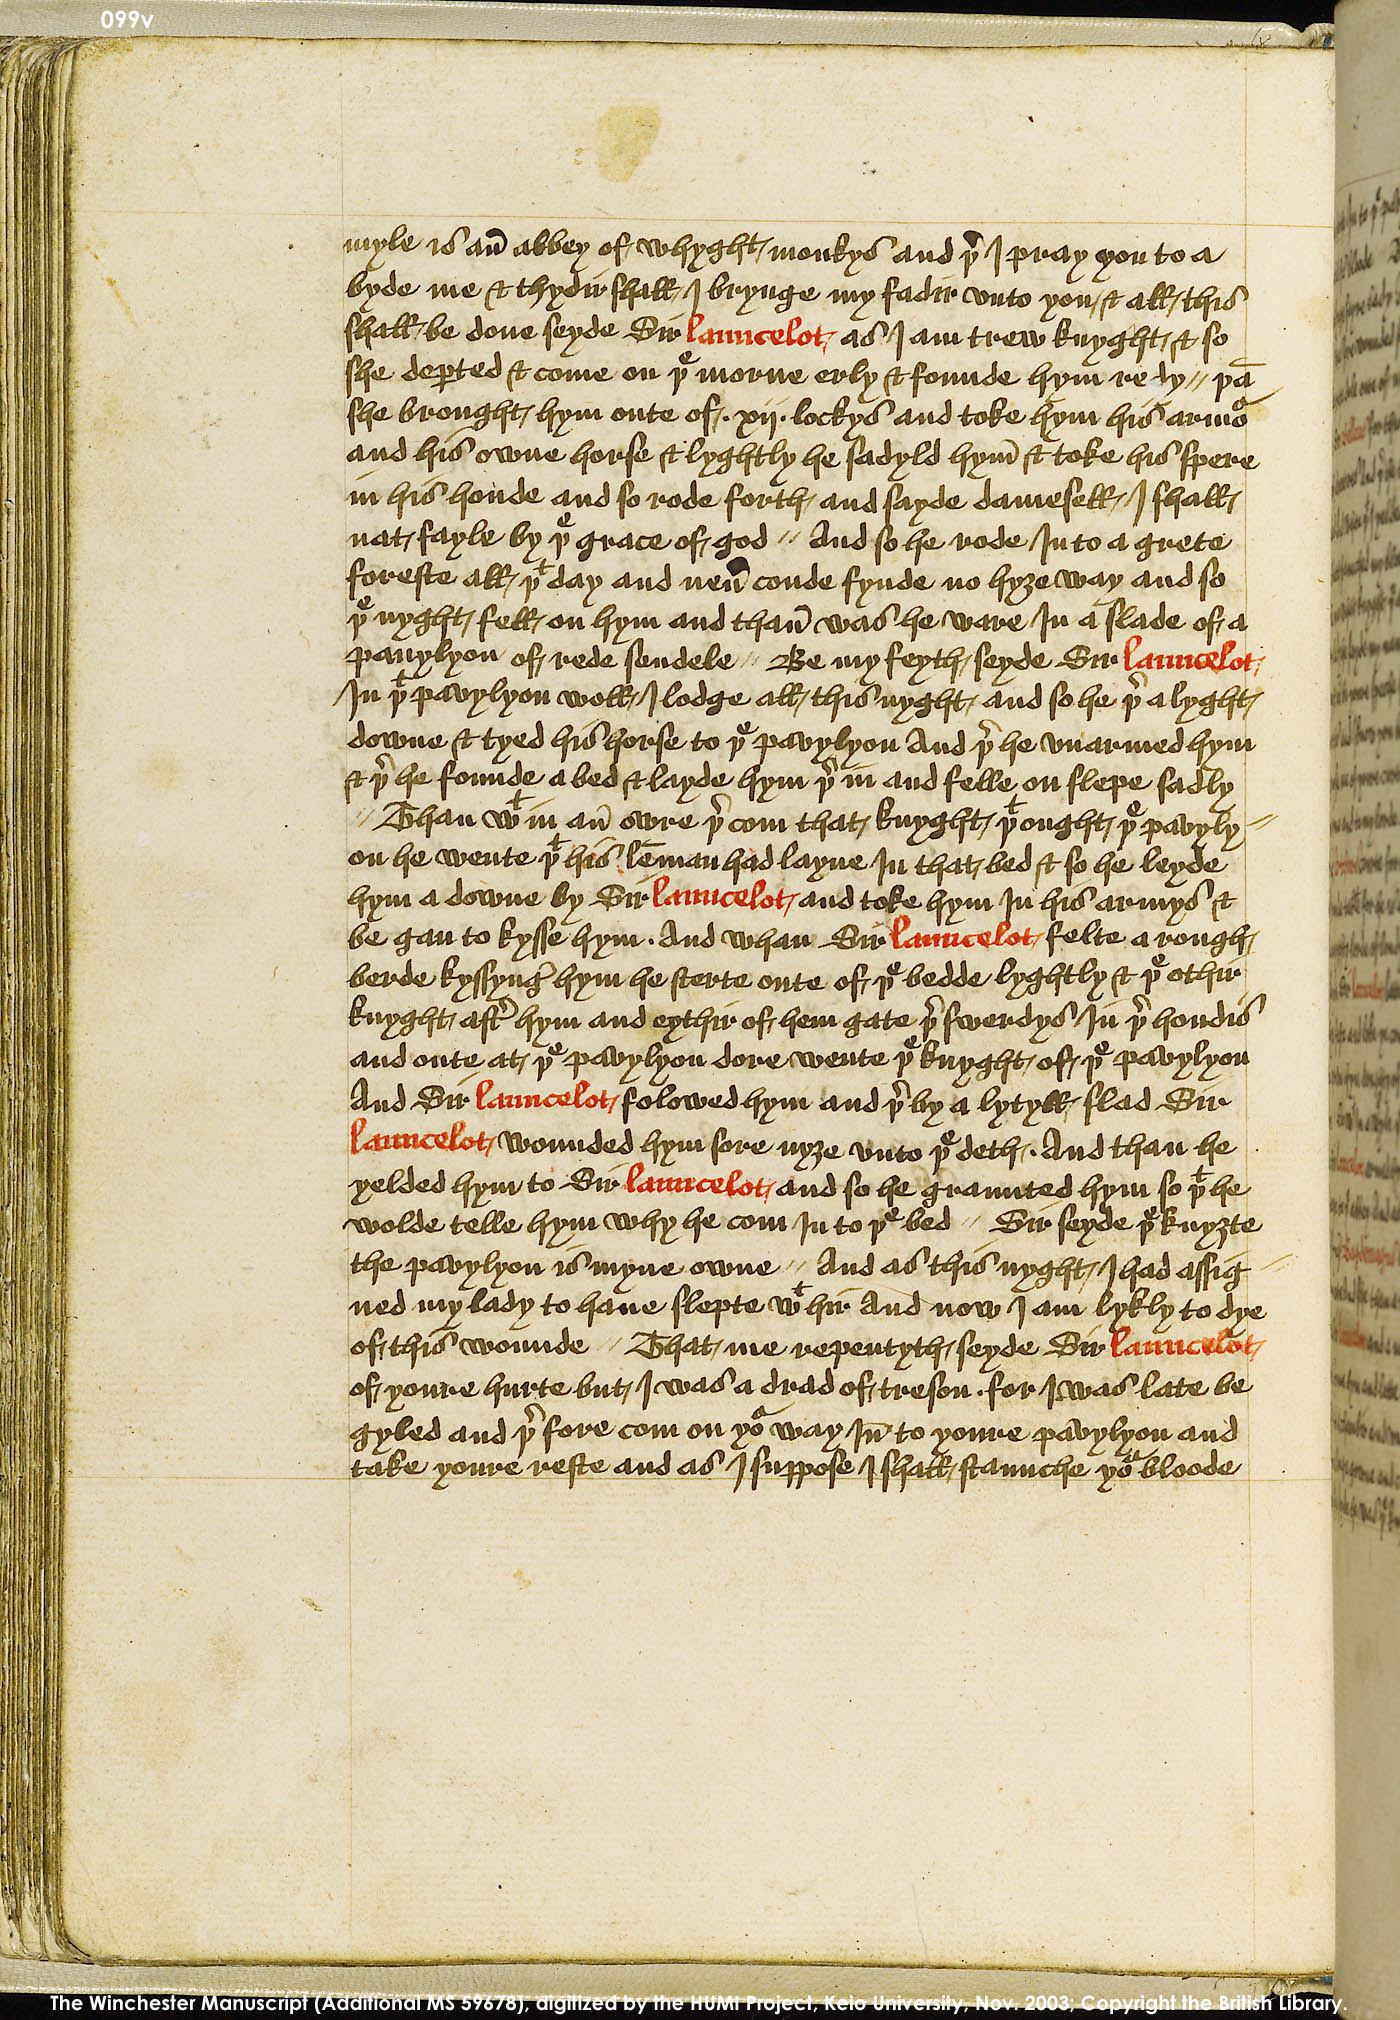 099v
myle is an̄ abbey of whyght monkys and þr I pray you to a
byde me & thydir shall I brynge my fadir vnto you & all this
shall be done seyde Sir launcelot as I am trew knyght & so
she deꝑted & come on þe morne erly & founde hym redy // þā
she brought hym oute of .xij. lockys and toke hym his armor
and his owne horse & lyghtly he sadyld hym̄ & toke his spere
in his honde and so rode forth and sayde damesell I shall
nat fayle by þe grace of god // And so he rode In to a grete
foreste all þt day and neũ coude fynde no hyȝe way and so
þe nyght fell on hym and than̄ was he ware In a slade of a
pauylyon of rede sendele // Be my feyth seyde Sir launcelot
In þt pavylyon woll I lodge all this nyght and so he þr a lyght
downe & tyed his horse to þe pavylyon And þr he vnarmed hym
& þr he founde a bed & layde hym þr in and felle on slepe sadly
// Than wt in an̄ owre þr com that knyght þt ought þe pavyly //
on he wente þt his lēman had layne In that bed & so he leyde
hym a downe by Sir launcelot and toke hym In his armys &
be gan to kysse hym . And whan Sir launcelot felte a rough
berde kyssyng hym he sterte oute of þe bedde lyghtly & þe othir
knyght aftr hym and eythir of hem gate þr swerdys In þr hondis
and oute at þe pavylyon dore wente þe knyght of þe pavylyon
And Sir launcelot folowed hym and þr by a lytyll slad Sir
launcelot wounded hym sore nyȝe vnto þe deth . And than he
yelded hym to Sir launcelot and so he graunted hym so þt he
wolde telle hym why he com In to þe bed // Sir seyde þe knyȝte
the pavylyon is myne owne // And as this nyght I had assig //
ned my lady to haue slepte wt hir And now I am lykly to dye
of this wounde // That me repentyth seyde Sir launcelot
of youre hurte but I was a drad of treson . for I was late be
gyled and þr fore com on yor way In̄ to youre pavylyon and
take youre reste and as I suppose I shall staunche yor bloode
The Winchester Manuscript (Additional MS 59678), digitized by the HUMI Project, Keio University, Nov. 2003; Copyright the British Library.